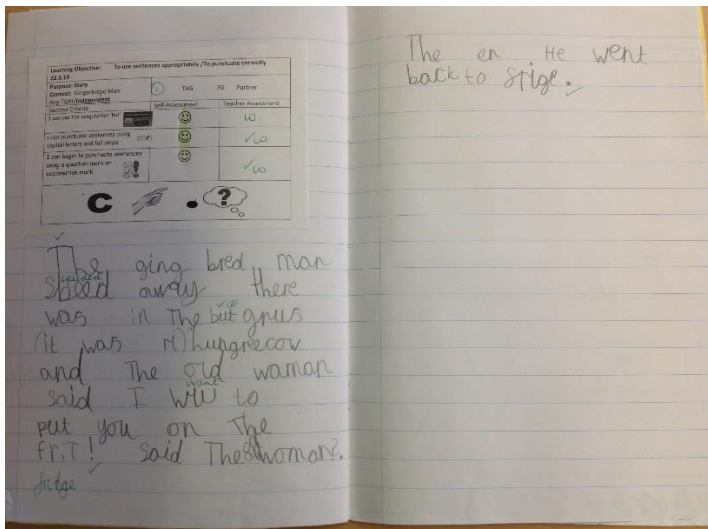 Learning Objective: To use sentences appropriately /To punctuate correctly
22.3.19
Purpose: Story
Context: Gingerbread Man
Independent
TAG FG Partner
Success Criteria Self-Assessment Teacher Assessment
I can use the conjunction 'but'
I can punctuate sentences using
capital letters and full stops
I can begin to punctuate sentences
using a question mark or
exclamation mark
C . ?
The ging bred man
speed away there
was in The but
(it was hungrecow
and The old waman
want
said I to
put you on The
friT! said The woman?.
fridge
The en. He went
back to